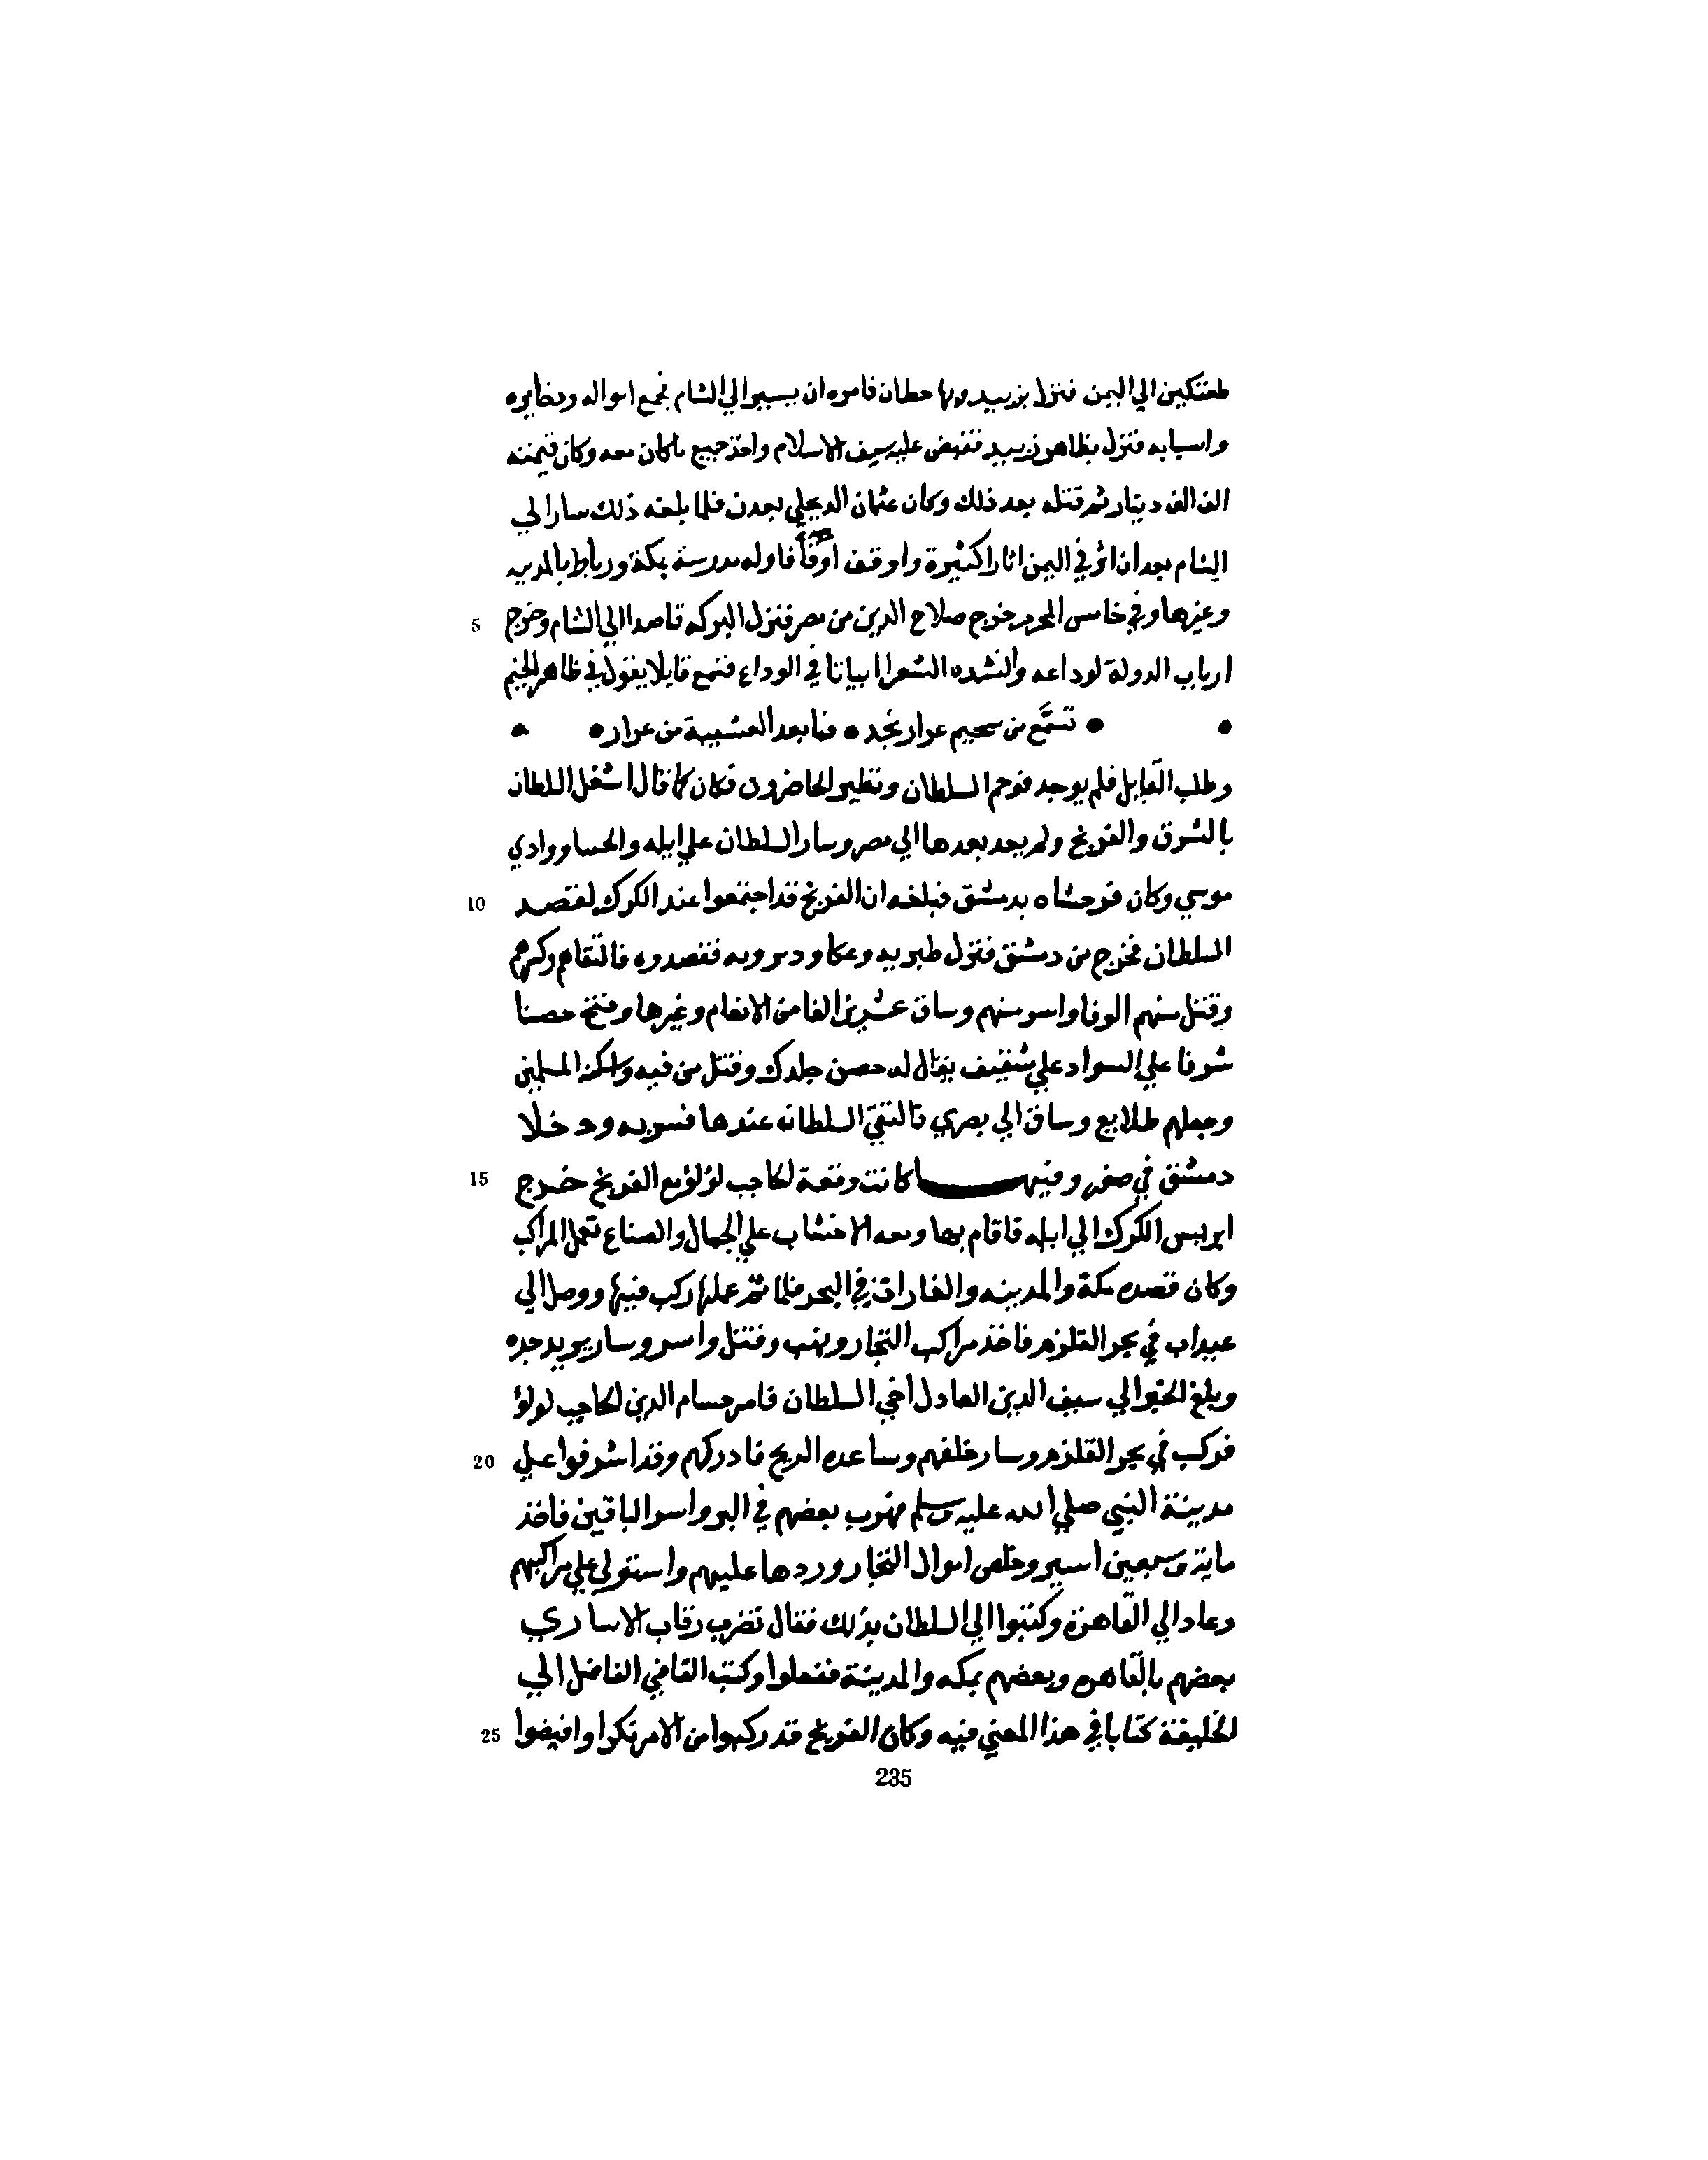 طغتكين الي اليمن فنزل بزبيد وبها حطان فامره ان يسير الي الشام فجمع امواله وذخايره
واسبابه فنزل بظاهر زبيد فقبض عليه سيف الاسلام واخذ جميع ماكان معه وكان قيمته
الف الف دينار ثم قتله بعد ذلك وكان عثمان الدنجيلي بعدن فلما بلغه ذلك سار الي
الشام بعد ان اثر في اليمن اثارا كثيرة واوقف اوقافا وله مدرسة بمكة ورباط بالمدينه
5 وغيرها وفي خامس المحرم خرج صلاح الدين من مصر فنزل البركه قاصدا الي الشام وخرج
ارباب الدولة لوداعه وانشده الشعرا ابياتا في الوداع فسمع قايلا يقول في ظاهر الخيم
• • تمتع من شميم عرار نجد • فما بعد العشيبة من عرار • •
وطلب القايل فلم يوجد فوجم السلطان وتطير الحاضرون فكان كما قال اشتغل السلطان
بالشرق والفرنج ولم يعد بعدها الي مصر وسار السلطان علي ايله والحسا ووادي
10 موسي وكان فرخشاه بدمشق فبلغه ان الفرنج قد اجتمعوا عند الكرك لقصد
السلطان فخرج من دمشق فنزل طبريه وعكا ودبوريه فقصدوه فالتقاهم وكسرهم
وقتل منهم الوفا واسر منهم وساق عشرين الفا من الانعام وغيرها وفتح حصنا
شرفا علي السواد علي شقيف يقال له حصن جلدك وقتل من فيه واسكنه المسلمين
وجعلهم طلايع وساق الي بصري فالتقي السلطان عندها فسر به ودخلا
15 دمشق في صفر وفيها كانت وقعة الحاجب لؤلؤ مع الفرنج خرج
ابرنس الكرك الي ايله فاقام بها ومعه الاخشاب علي الجمال والصناع تعمل المراكب
وكان قصده مكة والمدينه والغارات في البحر فلما تم عملها ركب فيها ووصل الي
عيداب في بحر القلزم فاخذ مراكب التجار ونهب وقتل واسر وسار يريد جده
وبلغ الخبر الي سيف الدين العادل اخي السلطان فامر حسام الدين الحاجب لولؤ
20 فركب في بحر القلزم وسار خلفهم وساعده الريح فادركهم وقد اشرفوا علي
مدينة النبي صلي الله عليه وسلم فهرب بعضهم في البر واسر الباقين فاخذ
ماية وسبعين اسير وخلص اموال التجار وردها عليهم واستولي علي مراكبهم
وعاد الي القاهرة وكتبوا الي السلطان بذلك فقال تضرب رقاب الاساري
بعضهم بالقاهره وبعضهم بمكه والمدينة ففعلوا وكتب القاضي الفاضل الي
25 الخليفة كتابا في هذا المعني فيه وكان الفرنج قد ركبوا من الامر نكرا وافتضوا
235